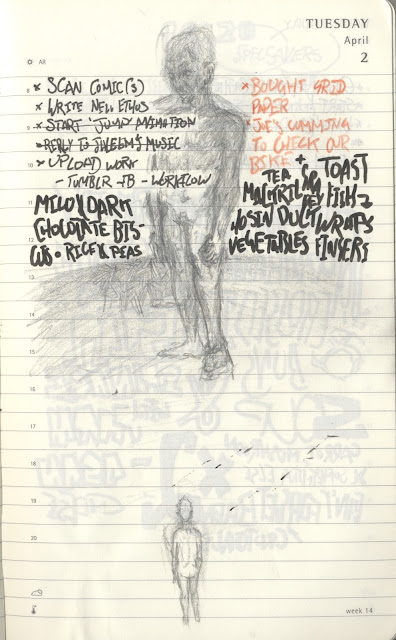 TUESDAY
April
2
AR
8
9
10
11
12
13
14
15
16
17
18
19
20
× SCAN COMIC(S)
× WRITE NEW ETHOS
× START 'JUMP' ANIMATION
× REPLY TO MUSIC
× UPLOAD WORK
- TUMBLR - FB - WORKFLOW
MILO DARK
CHOCOLATE BIS-
RICE & PEAS
× BOUGHT GRID
PAPER
× JOE'S CUMMING
TO CHECK OUR
BIKE
TEA + TOAST
FISH
DUCK WRAPS
VEGETABLES FINGERS
SPECSAVERS
week 14